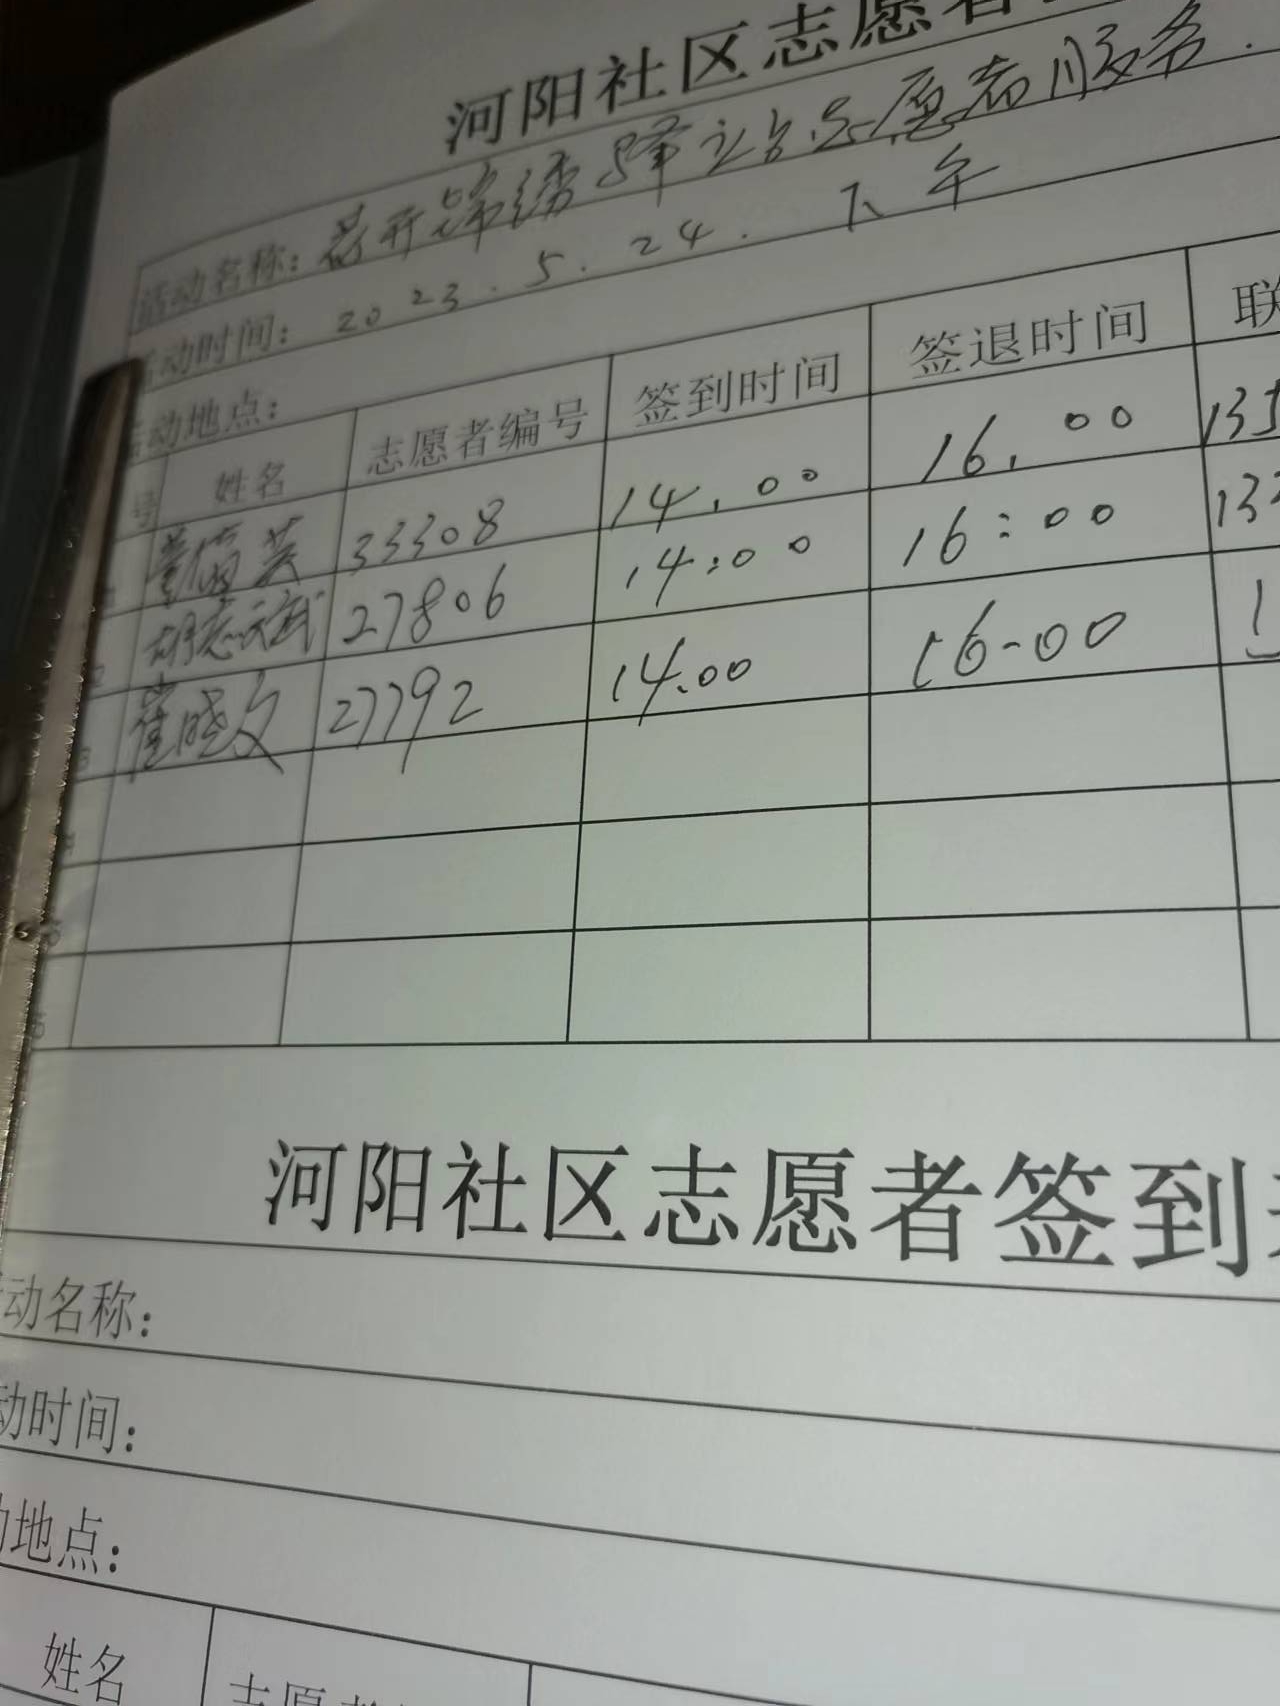 河阳社区志愿者
活动名称：花开锦绣驿站志愿者服务.
活动时间：2023.5.24.下午
动地点：
号 姓名 志愿者编号 签到时间 签退时间 联
33308 14.00 16.00 135
胡志斌 27806 14:00 16:00 133
崔晓文 27792 14.00 16-00 1
河阳社区志愿者签到
动名称：
动时间：
地点：
姓名 志愿者